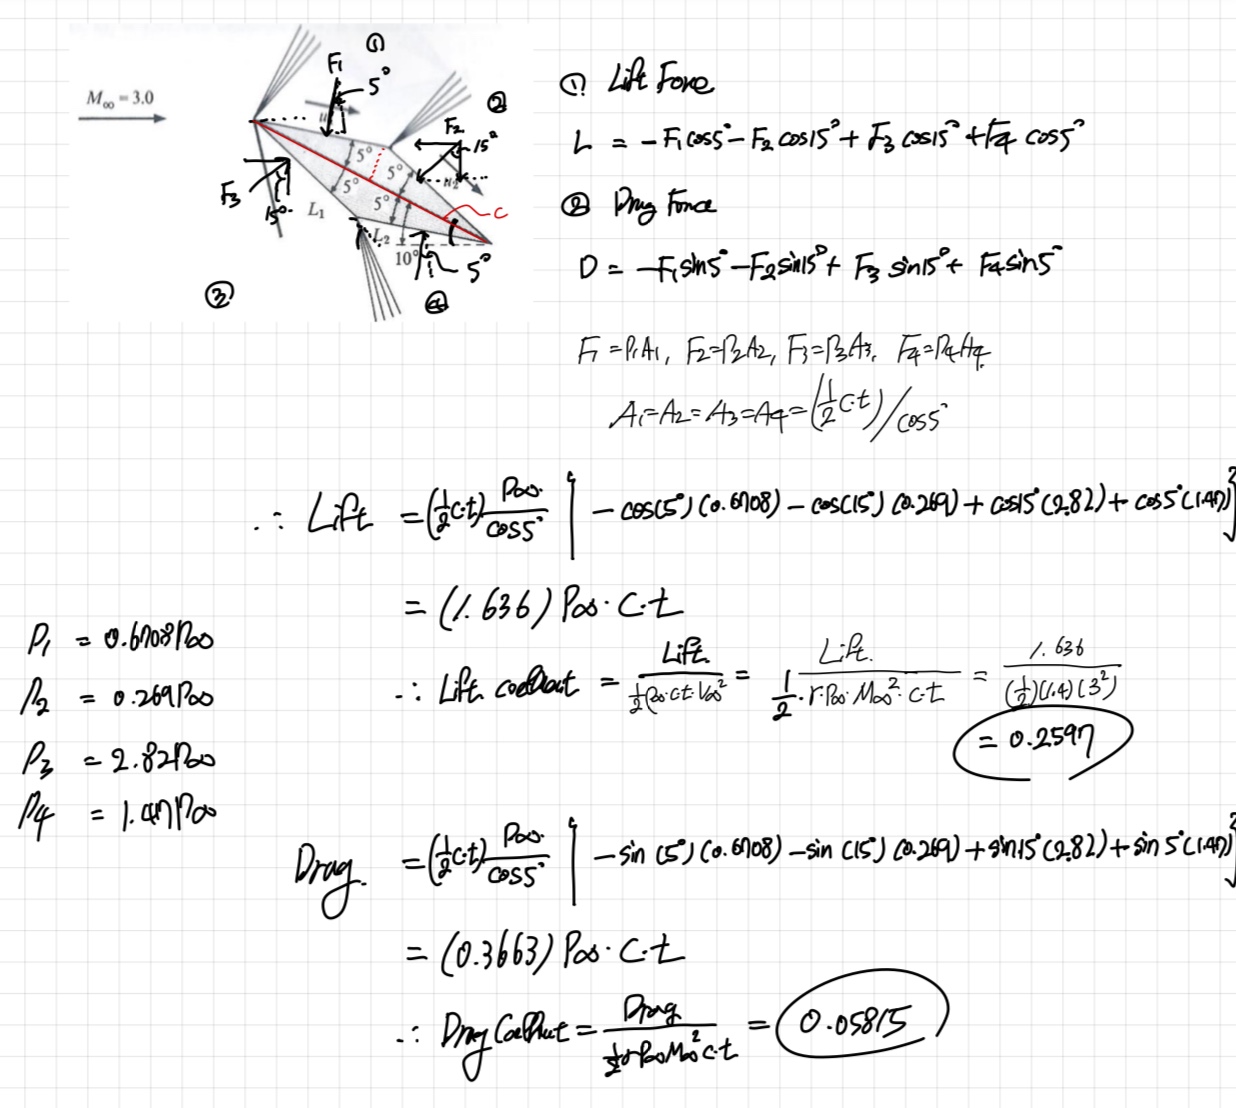 M∞ = 3.0
①
F₁
5°
②
F₂
15°
u₂
5°
5°
5°
5°
F₃
15°
L₁
L₂
c
10°
5°
③
④
① Lift Force
L = -F₁cos5° - F₂cos15° + F₃cos15° + F₄cos5°
② Drag Force
D = -F₁sin5° - F₂sin15° + F₃sin15° + F₄sin5°
F₁=P₁A₁, F₂=P₂A₂, F₃=P₃A₃, F₄=P₄A₄.
A₁=A₂=A₃=A₄=(½c·t)/cos5°
∴ Lift = (½c·t) P∞/cos5° { -cos(5°)(0.6708) - cos(15°)(0.269) + cos15°(2.82) + cos5°(1.47) }
= (1.636) P∞·c·t
P₁ = 0.6708P∞
P₂ = 0.269P∞
P₃ = 2.82P∞
P₄ = 1.47P∞
∴ Lift = Lift / ½ρ∞·ct·V∞² = Lift. / ½·r·P∞·M∞²·c·t = 1.636 / (½)(1.4)(3²)
= 0.2597
Drag. = (½c·t) P∞/cos5° { -sin(5°)(0.6708) - sin(15°)(0.269) + sin15°(2.82) + sin5°(1.47) }
= (0.3663) P∞·c·t
∴ Drag = Drag / ½rP∞M∞²c·t = 0.05815